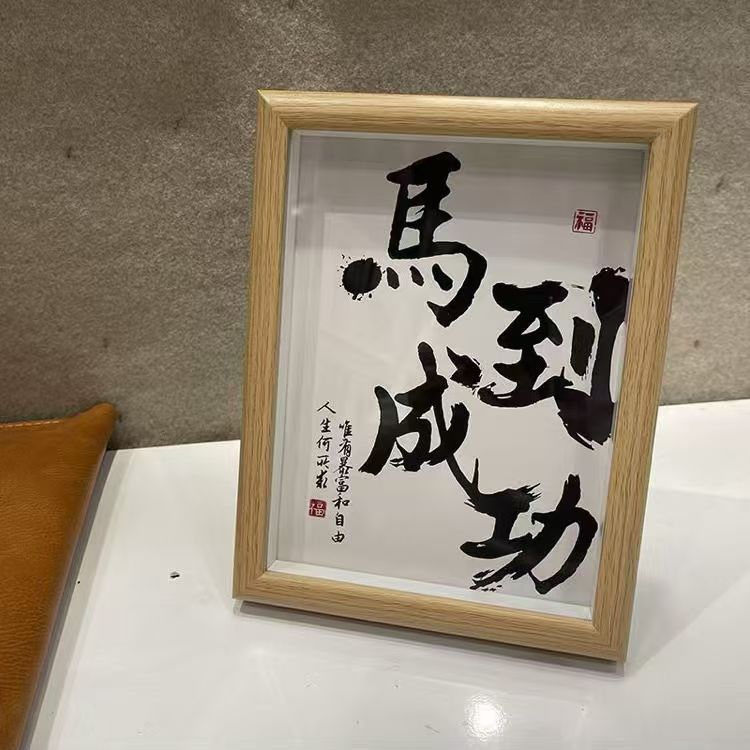 馬到成功
福
人生何所求
唯有暴富和自由
福